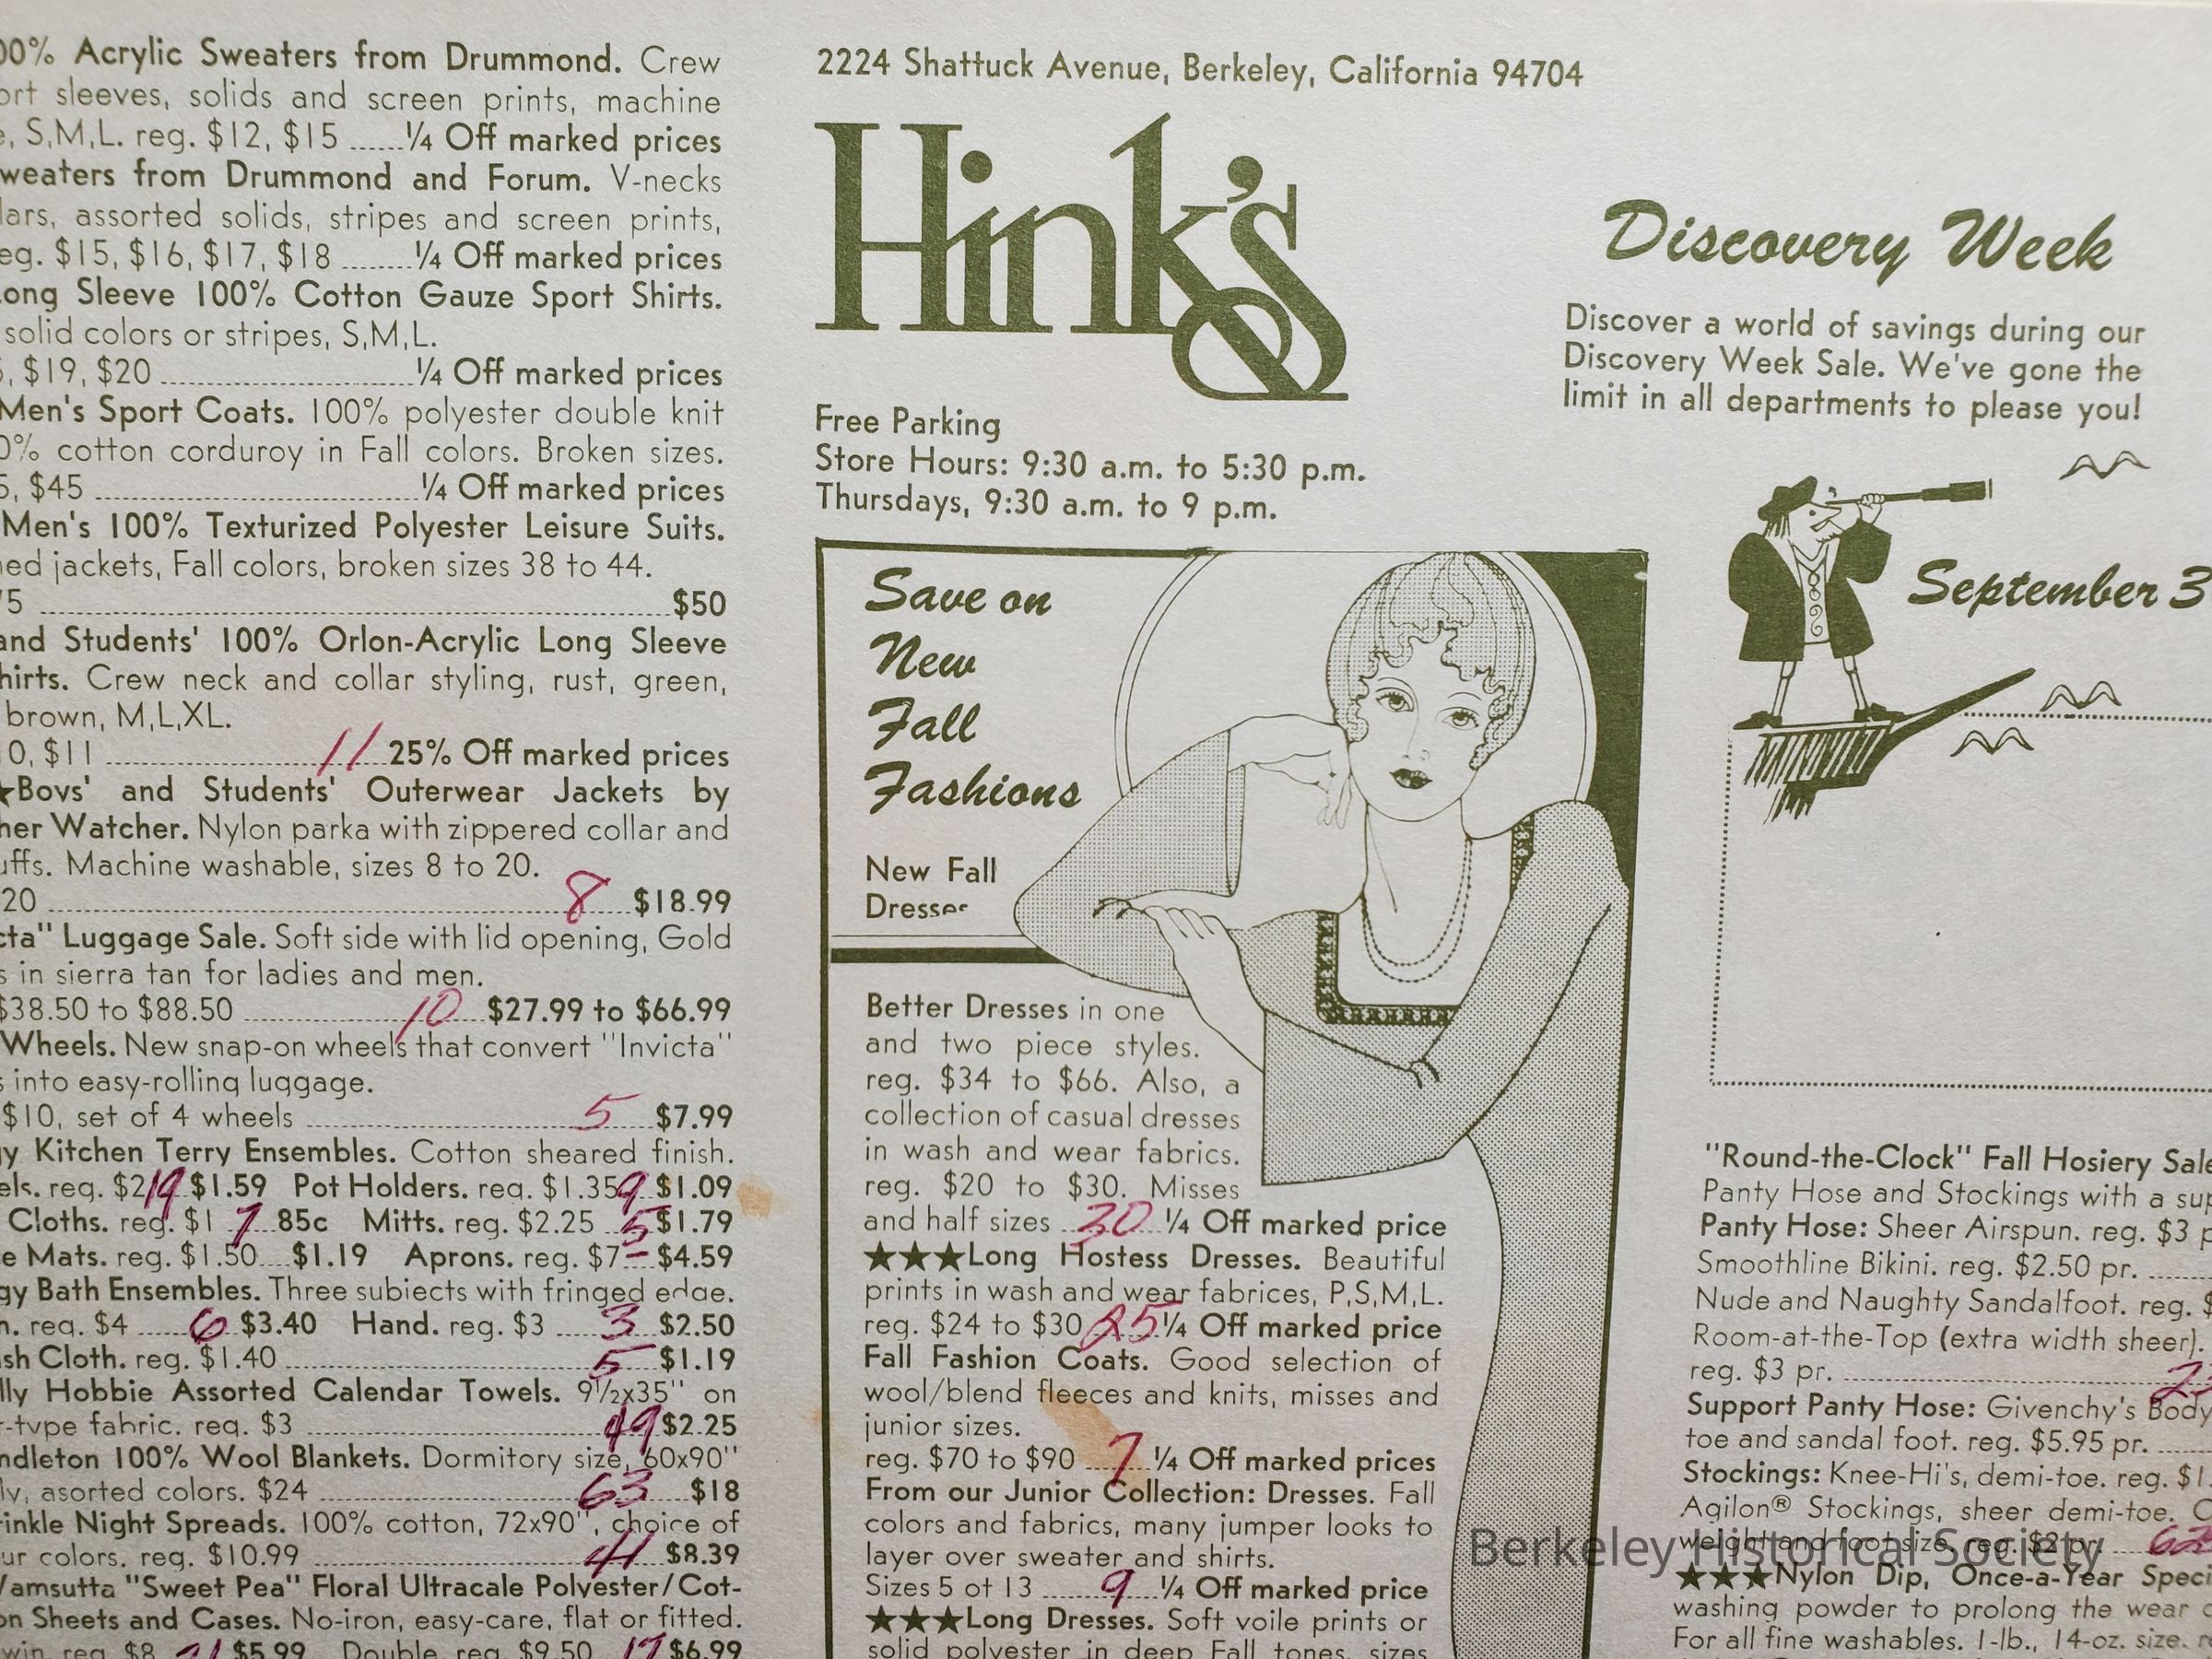 00% Acrylic Sweaters from Drummond. Crew
ort sleeves, solids and screen prints, machine
e, S,M,L. reg. $12, $15 ......¼ Off marked prices
weaters from Drummond and Forum. V-necks
lars, assorted solids, stripes and screen prints,
eg. $15, $16, $17, $18 ........¼ Off marked prices
ong Sleeve 100% Cotton Gauze Sport Shirts.
solid colors or stripes, S,M,L.
, $19, $20 ........¼ Off marked prices
Men's Sport Coats. 100% polyester double knit
0% cotton corduroy in Fall colors. Broken sizes.
5, $45 ........¼ Off marked prices
Men's 100% Texturized Polyester Leisure Suits.
ed jackets, Fall colors, broken sizes 38 to 44.
75 ........$50
and Students' 100% Orlon-Acrylic Long Sleeve
hirts. Crew neck and collar styling, rust, green,
brown, M,L,XL.
10, $11 ........ 11 25% Off marked prices
★Boys' and Students' Outerwear Jackets by
her Watcher. Nylon parka with zippered collar and
uffs. Machine washable, sizes 8 to 20.
20 ........ 8 $18.99
cta" Luggage Sale. Soft side with lid opening, Gold
s in sierra tan for ladies and men.
$38.50 to $88.50 ........ 10 $27.99 to $66.99
Wheels. New snap-on wheels that convert "Invicta"
s into easy-rolling luggage.
$10, set of 4 wheels ........ 5 $7.99
gy Kitchen Terry Ensembles. Cotton sheared finish.
els. reg. $2 19 $1.59 Pot Holders. reg. $1.35 9 $1.09
Cloths. reg. $1 7 85c Mitts. reg. $2.25 5 $1.79
e Mats. reg. $1.50....$1.19 Aprons. reg. $7 - $4.59
gy Bath Ensembles. Three subjects with fringed edge.
h. reg. $4 ..... 6 $3.40 Hand. reg. $3 ..... 3 $2.50
sh Cloth. reg. $1.40 ........ 5 $1.19
lly Hobbie Assorted Calendar Towels. 9½x35" on
r-type fabric. reg. $3 ........ 49 $2.25
ndleton 100% Wool Blankets. Dormitory size, 60x90"
ly, asorted colors. $24 ........ 63 $18
rinkle Night Spreads. 100% cotton, 72x90", choice of
ur colors. reg. $10.99 ........ 41 $8.39
Wamsutta "Sweet Pea" Floral Ultracale Polyester/Cot-
on Sheets and Cases. No-iron, easy-care, flat or fitted.
win reg. $8 21 $5.99 Double reg. $9.50 17 $6.99
2224 Shattuck Avenue, Berkeley, California 94704
Hink's
Free Parking
Store Hours: 9:30 a.m. to 5:30 p.m.
Thursdays, 9:30 a.m. to 9 p.m.
Save on
New
Fall
Fashions
New Fall
Dresses
Better Dresses in one
and two piece styles.
reg. $34 to $66. Also, a
collection of casual dresses
in wash and wear fabrics.
reg. $20 to $30. Misses
and half sizes 30 ¼ Off marked price
★★★Long Hostess Dresses. Beautiful
prints in wash and wear fabrices, P,S,M,L.
reg. $24 to $30 25 ¼ Off marked price
Fall Fashion Coats. Good selection of
wool/blend fleeces and knits, misses and
junior sizes.
reg. $70 to $90 7 ¼ Off marked prices
From our Junior Collection: Dresses. Fall
colors and fabrics, many jumper looks to
layer over sweater and shirts.
Sizes 5 ot 13 ...... 9 ¼ Off marked price
★★★Long Dresses. Soft voile prints or
solid polyester in deep Fall tones, sizes
Discovery Week
Discover a world of savings during our
Discovery Week Sale. We've gone the
limit in all departments to please you!
September 3
"Round-the-Clock" Fall Hosiery Sale
Panty Hose and Stockings with a sup
Panty Hose: Sheer Airspun. reg. $3 p
Smoothline Bikini. reg. $2.50 pr. ......
Nude and Naughty Sandalfoot. reg. $
Room-at-the-Top (extra width sheer).
reg. $3 pr. ........
Support Panty Hose: Givenchy's Body
toe and sandal foot. reg. $5.95 pr. ......
Stockings: Knee-Hi's, demi-toe. reg. $1.
Agilon® Stockings, sheer demi-toe. C
weight and foot size. reg. $2 pr. ....
★★★Nylon Dip, Once-a-Year Speci
washing powder to prolong the wear o
For all fine washables. 1-lb., 14-oz. size. r
Berkeley Historical Society